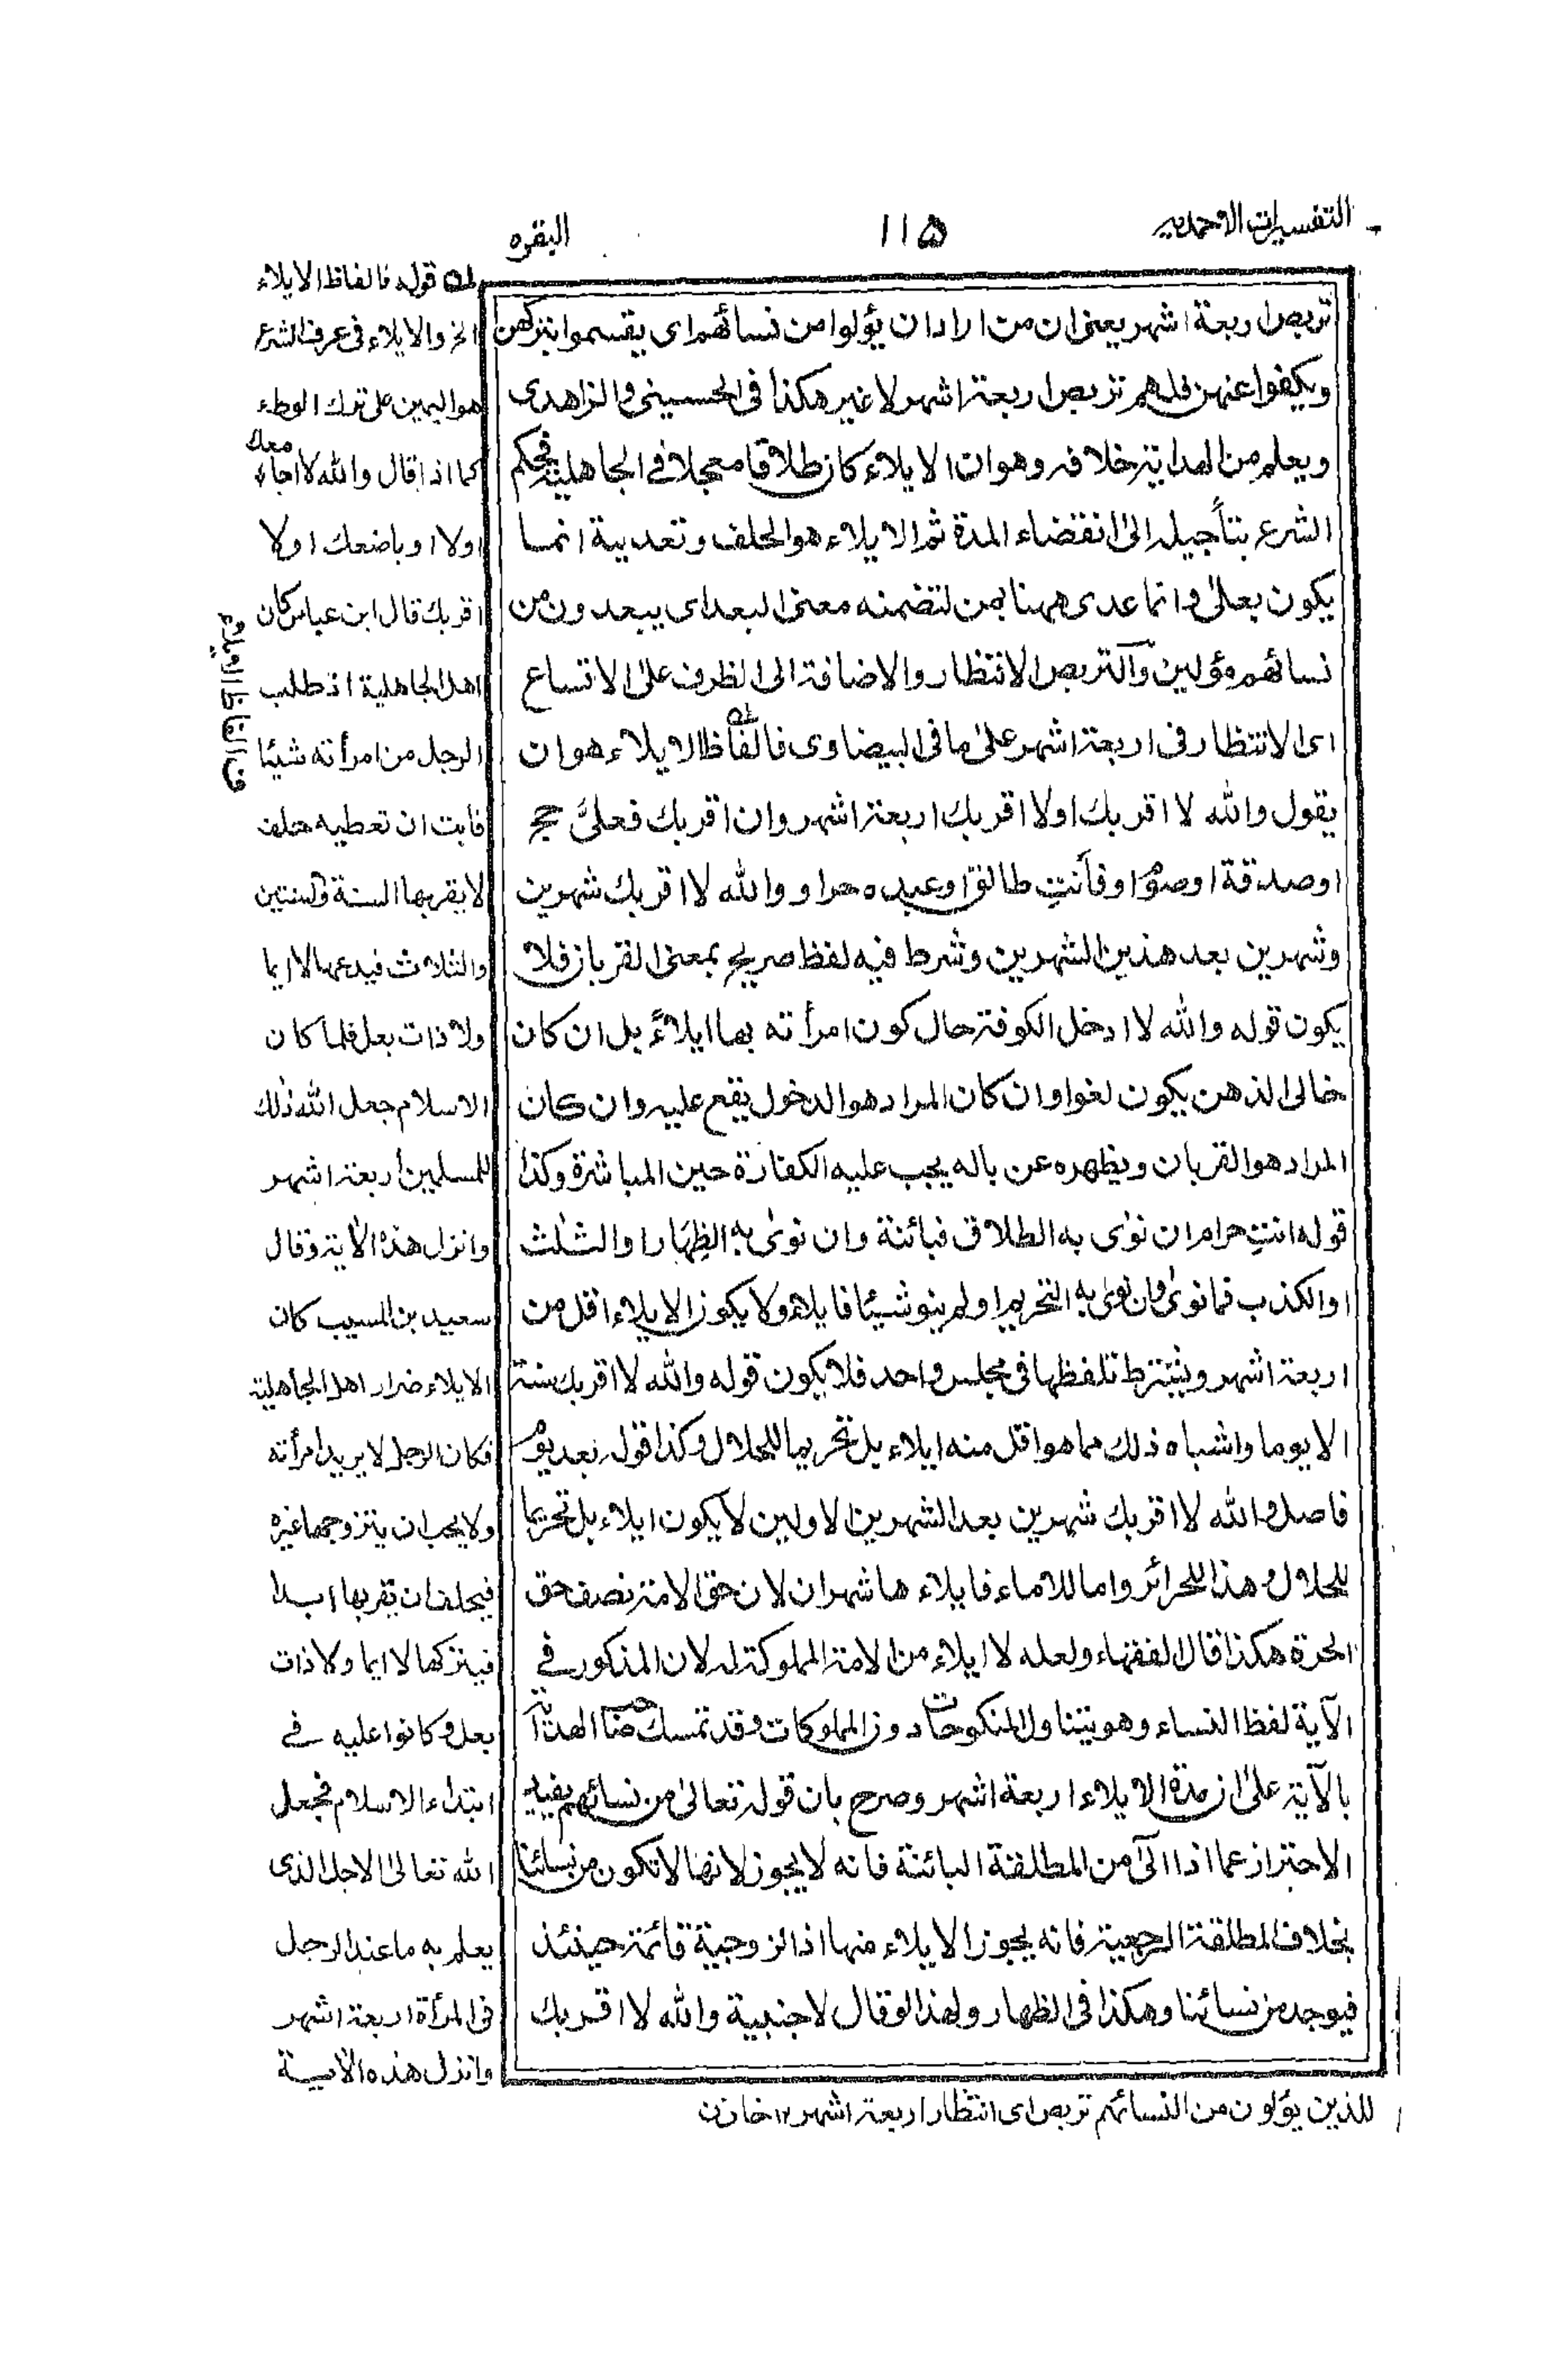 التفسيرات الاحمديه
١١٥
البقره
تربص اربعة اشهر يعنى ان من اراد ان يؤلوا من نسائهم اى يقسموا بتركهن
ويكفوا عنهن فلهم تربص اربعة اشهر لا غير هكذا فى الحسينى والزاهدى
ويعلم من الهداية خلافه وهو ان الايلاء كان طلاقا معجلا فى الجاهلية فحكم
الشرع بتأجيله الى انقضاء المدة ثم الايلاء هو الحلف وتعديية انما
يكون بعلى وانما عدى ههنا بمن لتضمنه معنى البعد اى يبعدون من
نسائهم مؤلين والتربص الانتظار والاضافة الى الظرف على الاتساع
اى الانتظار فى اربعة اشهر على ما فى البيضاوى فالفاظ الايلاء هو ان
يقول والله لا اقربك اولا اقربك اربعة اشهر وان اقربك فعلىّ حج
او صدقة او صوم او فأنتِ طالق او عبده حر او والله لا اقربك شهرين
وشهرين بعد هذين الشهرين وشرط فيه لفظ صريح بمعنى القربان فلا
يكون قوله والله لا ادخل الكوفة حال كون امرأته بها ايلاءً بل ان كان
خالى الذهن يكون لغوا وان كان المراد هو الدخول يقع عليه وان كان
المراد هو القربان ويظهره عن باله يجب عليه الكفارة حين المباشرة وكذا
قوله انتِ حرام ان نوى به الطلاق فبائنة وان نوى به الظِهَار او الثلٰث
او الكذب فما نوى وان نوى به التحريم او لم ينو شيئا فايلاء ولا يكون الايلاء اقل من
اربعة اشهر ويشترط تلفظها فى مجلس واحد فلا يكون قوله والله لا اقربك سنة
الا يوما واشباه ذلك مما هو اقل منه ايلاء بل تحريما للحلال وكذا قوله بعد يوم
فاصل والله لا اقربك شهرين بعد الشهرين الاولين لا يكون ايلاء بل تحريما
للحلال وهذا للحرائر واما للاماء فايلاء ها شهران لان حق الامة نصف حق
الحرة هكذا قال الفقهاء ولعله لا ايلاء من الامة المملوكة له لان المذكور فى
الآية لفظ النساء وهو يتناول المنكوحات دون المملوكات وقد تمسك صاحب الهداية
بالآية على ان مدة الايلاء اربعة اشهر وصرح بان قوله تعالى من نسائهم يفيد
الاحتراز عما اذا آلى من المطلقة البائنة فانه لا يجوز لانها لا تكون من نسائنا
بخلاف المطلقة الرجعية فانه يجوز الايلاء منها اذ الزوجية قائمة حينئذ
فيوجد من نسائنا وهكذا فى الظهار ولهذا لو قال لاجنبية والله لا اقربك
له قوله فالفاظ الايلاء
الخ والايلاء فى عرف الشرع
هو اليمين على ترك الوطء
كما اذا قال والله لا اجامعك
اولا او باضعك اولا
اقربك قال ابن عباس كان
اهل الجاهلية اذ طلب
الرجل من امرأته شيئا
فابت ان تعطيه حلف
لا يقربها السنة والسنتين
والثلاث فيدعها لا ايما
ولا ذات بعل فلما كان
الاسلام جعل الله ذلك
للمسلمين اربعة اشهر
وانزل هذه الآية وقال
سعيد بن المسيب كان
الايلاء ضرار اهل الجاهلية
فكان الرجل لا يريد امرأته
ولا يحب ان يتزوجها غيره
فيحلف ان يقربها ابدا
فيتركها لا ايما ولا ذات
بعل وكانوا عليه فى
ابتداء الاسلام فجعل
الله تعالى الاجل الذى
يعلم به ما عند الرجل
فى المرأة اربعة اشهر
وانزل هذه الآية
للذين يؤلون من النسائهم تربص اى انتظار اربعة اشهر ١٢ خازن
ف الفاظ الايلاء